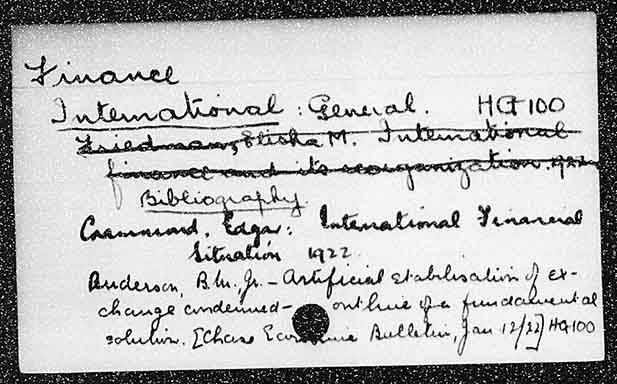 Finance
International : General. HG 100
Friedman, Elisha M. International
finance and its reorganization. 1922
Bibliography
Crammond, Edgar: International Financial
Situation 1922.
Anderson, B.M., Jr. – Artificial stabilisation of ex-
change condemned – outline of a fundamental
solution. [Chase Economic Bulletin, Jan 12/22] HG 100